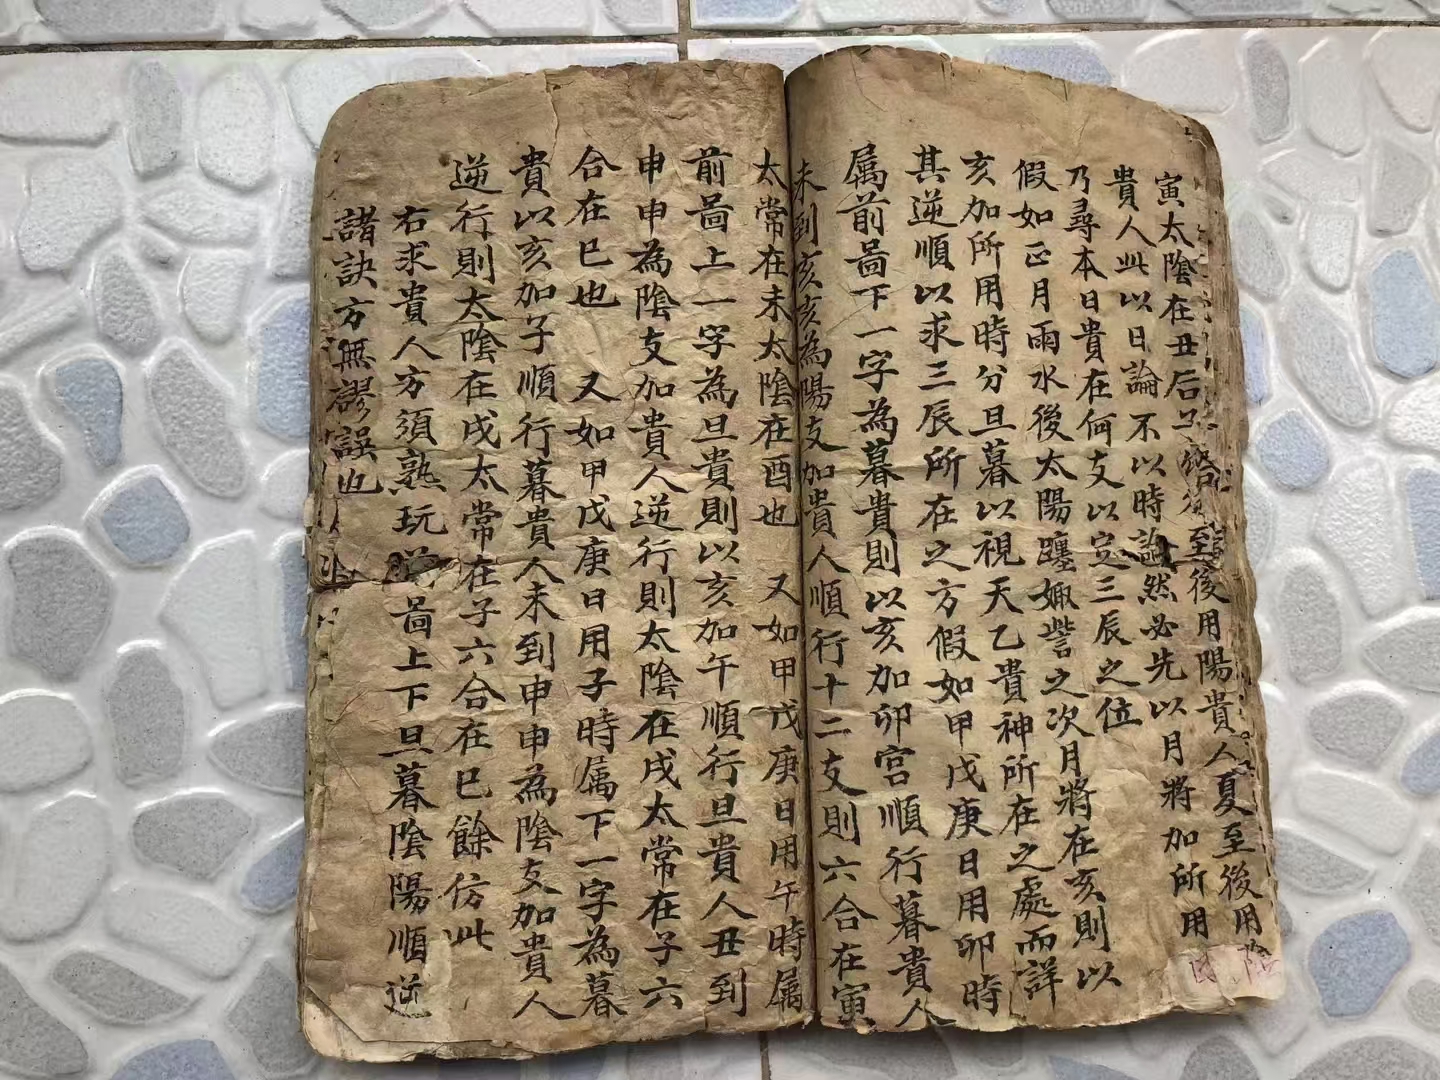 寅太陰在丑后子
至後用陽貴人夏至後用
貴人此以日論不以時論然必先以月將加所用
乃尋本日貴在何支以定三辰之位
假如正月雨水後太陽躔娵訾之次月將在亥則以
亥加所用時分旦暮以視天乙貴神所在之處而詳
其逆順以求三辰所在之方假如甲戊庚日用卯時
属前啚下一字為暮貴則以亥加卯宮順行暮貴人
未到亥亥為陽支加貴人順行十二支則六合在寅
太常在未太陰在酉也 又如甲戊庚日用午時属
前啚上一字為旦貴則以亥加午順行旦貴人丑到
申申為陰支加貴人逆行則太陰在戌太常在子六
合在巳也 又如甲戊庚日用子時属下一字為暮
貴以亥加子順行暮貴人未到申申為陰支加貴人
逆行則太陰在戌太常在子六合在巳餘仿此
右求貴人方須熟玩啚上下旦暮陰陽順逆
諸訣方無謬誤也